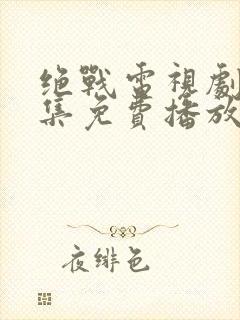 绝戰電視劇
集免費播放
夜緋色